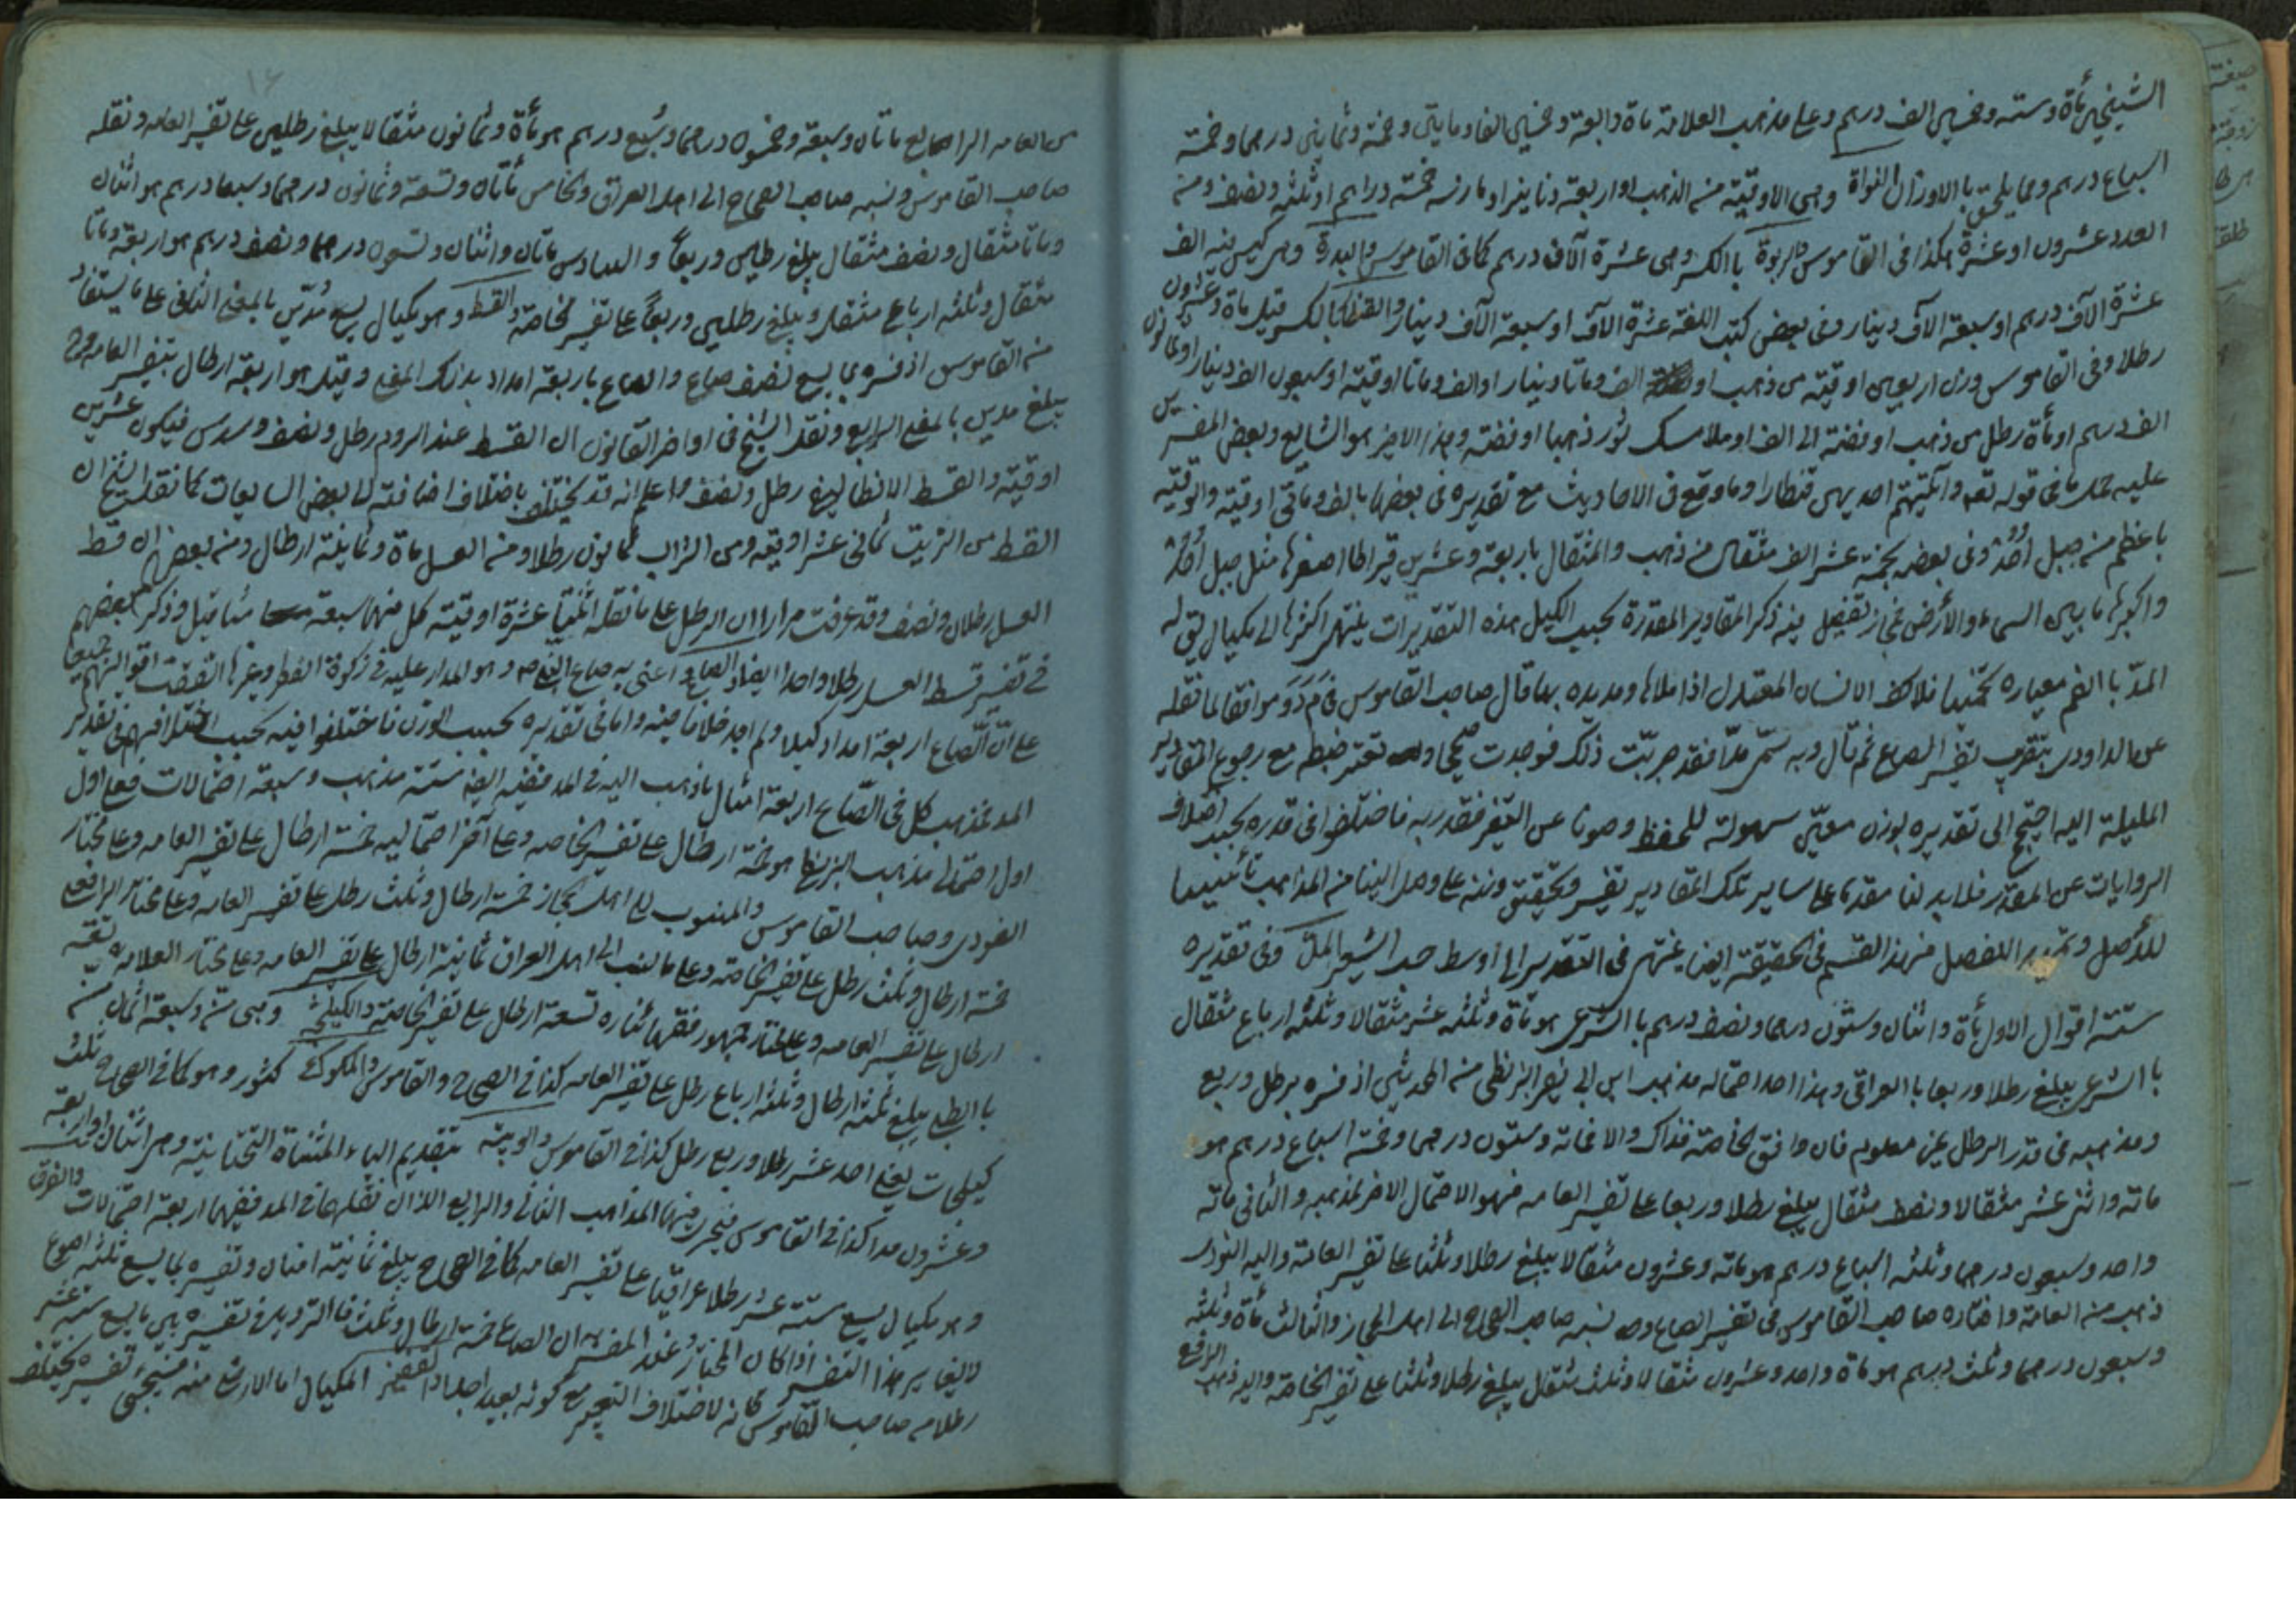 الشيخين مأة وسته وخمسين الف درهم وعلى مذهب العلامة ماة واربعة وخمسين الفا ومايتى وخمسة وثمانين درهما وخمسة
اسباع درهم ومما يلحق بالاوزان النواة وهى الاوقية من الذهب او اربعة دنانير او ما زنه خمسة دراهم او ثلثه ونصف ومن
العدد عشرون او عشرة هكذا فى القاموس والربوة بالكسر وهى عشرة آلاف درهم كما فى القاموس والبدرة وهى كيس فيه الف
عشرة الآف درهم او سبعة الآف دينار وفى بعض كتب اللغة عشرة الآف او سبعة الآف دينار والقنطار بالكسر قيل ماة وعشرون
رطلا وفى القاموس وزن اربعين اوقية من ذهب او الف ومأتا دينار او الف ومأتا اوقية او سبعون الف دينار او ثمانون
الف درهم او مأة رطل من ذهب او فضة او الف او ملا مسك ثور ذهبا او فضة وهذا الاخير هو الشايع وبعض المفسرين
عليه حمل ما فى قوله تعم وآتيتم احديهن قنطارا وما وقع فى الاحاديث مع تقديره فى بعضها بالف ومأتى اوقية والوقية
باعظم من جبل اُحُد وفى بعضه بخمسة عشر الف مثقال من ذهب والمثقال باربعة وعشرين قيراطا اصغرها مثل جبل اُحُد
واكبرها ما بين السماء والأرض فمجاز تفصيل فيه ذكر المقادير المقدرة بحسب الكيل هذه التقديرات ينتهى اكثرها الى مكيال يق له
المدّ بالضم معياره تخمينا ملا كف الانسان المعتدل اذا ملاها ومد يده بها قال صاحب القاموس فى م د د موافقا لما نقله
عن الداودى بتقريب تفسير الصاع ثم قال وبه سمّى مدّا فقد جربّت ذلك فوجدت صحيحا ولما تعسر ضبطه مع رجوع المقادير
اليه احتيج الى تقديره بوزن معيّن سهولة للحفظ وصونا عن التغير فقدر به فاختلفوا فى قدره بحسب اختلاف
الروايات عن المقدر فلابد لنا مقدما على ساير تلك المقادير تفسير وتحقيق وزنه على وصل الينا من المذاهب تأسيسا
للأصل و للفصل فهذا القسم فى الحقيقة ايضا ينتهى فى التقدير الى اوسط حب الشعير الملك وفى تقديره
ستة اقوال الاول مأة واثنان وستون درهما ونصف درهم بالشرعى هو مأة وثلثه عشر مثقالا وثلثه ارباع مثقال
بالشرعى يبلغ رطلا وربعا بالعراقى وهذا احد احتماله مذهب ابن ابى نصر البزنطى من المحدثين اذ فسره برطل وربع
ومذهبه فى قدر الرطل غير معلوم فان وافق الخاصة فذاك والا فمائة وستون درهما وخمسة اسباع درهم هو
مائة واثنى عشر مثقالا ونصف مثقال يبلغ رطلا وربعا على تفسير العامه فهو الاحتمال الاخر لمذهبه والثانى مائة
واحد وسبعون درهما وثلثه اسباع درهم هو مائة وعشرون مثقالا يبلغ رطلا وثلثا على تفسير العامة واليه النودى
ذهب من العامة واختاره صاحب القاموس فى تفسير الصاع وصد نسبه صاحب الصحاح الى اهل الحجاز والثالث مأة وثلثه
وسبعون درهما وثلث درهم هو ماة واحد وعشرون مثقالا وثلث مثقال يبلغ رطلا وثلثا على تفسير الخاصة واليه ذهب الرافعى
من العامه الرابع ماتان وسبعة وخمسون درهما وسُبع درهم هو مأة وثمانون مثقالا يبلغ رطلين على تفسير العامه ونقله
صاحب القاموس ونسبه صاحب الصحاح الى اهل العراق والخامس مأتان وتسعة وثمانون درهما وسبعا درهم هو اثنان
ومأتا مثقال ونصف مثقال يبلغ رطلين وربعاً والسادس مأتان واثنان وتسعون درهما ونصف درهم هو اربعة ومأتا
مثقال وثلثه ارباع مثقال ويبلغ رطلين وربعاً على تفسير الخاصة والقسط وهو مكيال يسع مُدّين بالمعنى الثانى على ما يستفاد
من القاموس اذ فسره بما يسع نصف صاع والصاع باربعة امداد بذلك المعنى وقيل هو اربعة ارطال بتفسير العامه وح
يبلغ مدين بالمعنى الرابع ونقل الشيخ فى اواخر القانون ان القسط عند الروم رطل ونصف وسدس فيكون عشرين
اوقية والقسط الانطاليقى رطل ونصف واعلم انه قد يختلف باختلاف اضافته الى بعض المايعات كما نقله الشيخ ان
القسط من الزيت ثمانى عشر اوقيه ومن الشراب ثمانون رطلا ومن العسل ماة وثمانية ارطال ومن بعض ان قسط
العسل رطلان ونصف وقد عرفت مرارا ان الرطل على ما نقله اثنتا عشرة اوقية كل منها سبعة مثاقيل وذكر بعضهم
فى تفسير قسط العسل رطلا واحدا ايضا والصاع واعنى به صاع النبى صم وهو المدار عليه فى زكوة الفطر وغيرها اتفقت اقوالهم جميعا
على انّ الصاع اربعة امداد كيلا ولم اجد خلافا فيه واما فى تقديره بحسب الوزن فاختلفوا فيه بحسب اختلافهم فى تقدير
المد فمذهب كل فى الصّاع اربعة امثال ما ذهب اليه فى المد ففيه ايضا ستة مذهب وسبعة احتمالات فعلى اول
اول احتمالى مذهب البزنطى هو خمسة ارطال على تفسير الخاصه وعلى آخر احتماليه خمسة ارطال على تفسير العامه وعلى مختار
النودى وصاحب القاموس والمنسوب الى اهل الحجاز خمسة ارطال وثلث رطل على تفسير العامه وعلى مختار الرافعى
خمسة ارطال وثلث رطل على تفسير الخاصه وعلى ما نسب الى اهل العراق ثمانية ارطال على تفسير العامه وعلى مختار العلامه تسعة
ارطال على تفسير العامه وعلى مختار جمهور فقهائنا ره تسعة ارطال على تفسير الخاصة والكيلجة وهى منّ وسبعة اثمان منّ
بالبطى يبلغ ثلثه ارطال وثلثه ارباع رطل على تفسير العامه كذا فى الصحاح والقاموس والمكوك كتنور وهو كما فى الصحاح ثلث
كيلجات يعنى احد عشر رطلا وربع رطل كذا فى القاموس والويبة بتقديم الياء المثناة التحتانية وهى اثنان او اربعة
وعشرون مدا كذا فى القاموس فيجرى فيها المذاهب الثانى والرابع اللذان نقلهما فى المد ففيها اربعة احتمالات والفرق
وهو مكيال يسع ستة عشر رطلا عراقيا على تفسير العامه كما فى الصحاح يبلغ ثمانية امنان وتفسيره بما يسع ثلثه اصوع
لا يغاير هذا التفسير اذا كان المختار عند المفسر ان الصاع خمسة ارطال وثلث فالترديد فى تفسيره بين ما يسع ستة عشر
رطلا من صاحب القاموس كانه لاختلاف التعبير مع كونه بعيد اجدا والقفيز المكيال اما الارشع منه فيجئ تفسيره يختلف